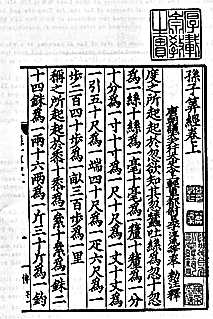 孫子算經卷上
唐朝議大夫行太史令上輕車都尉臣李淳風等奉 勅注釋
度之所起起於忽欲知其忽蠶吐絲為忽十忽
為一絲十絲為一毫十毫為一釐十釐為一分
十分為一寸十寸為一尺十尺為一丈十丈為
一引五十尺為一端四十尺為一疋六尺為一
步二百四十步為一畝三百步為一里
稱之所起起於黍十黍為一絫十絫為一銖二
十四銖為一兩十六兩為一斤三十斤為一鈞